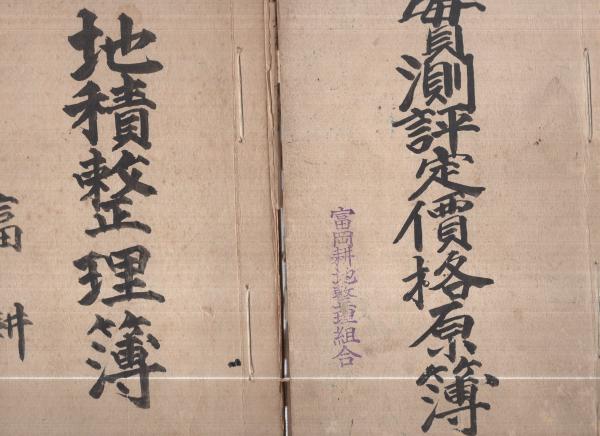 實測評定價格原簿
富岡耕地整理組合
地積整理簿
富耕